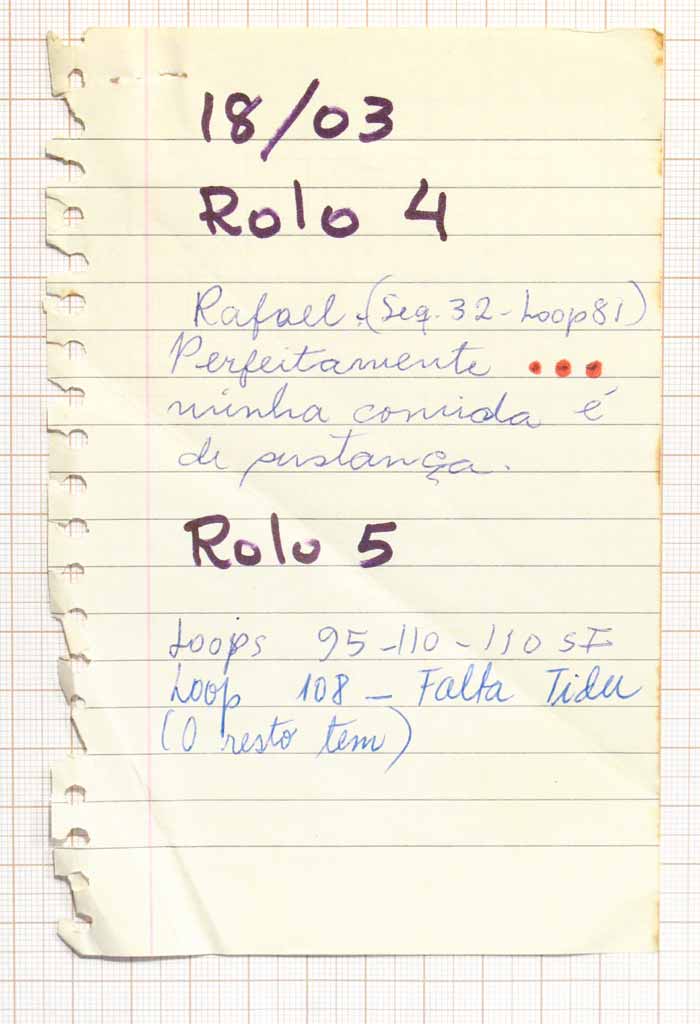 18/03
Rolo 4
Rafael. (Seq. 32 - Loop 81)
Perfeitamente ...
minha comida é
de pustança.
Rolo 5
Loops 95 - 110 - 110 sI
Loop 108 - Falta Tidu
(O resto tem)